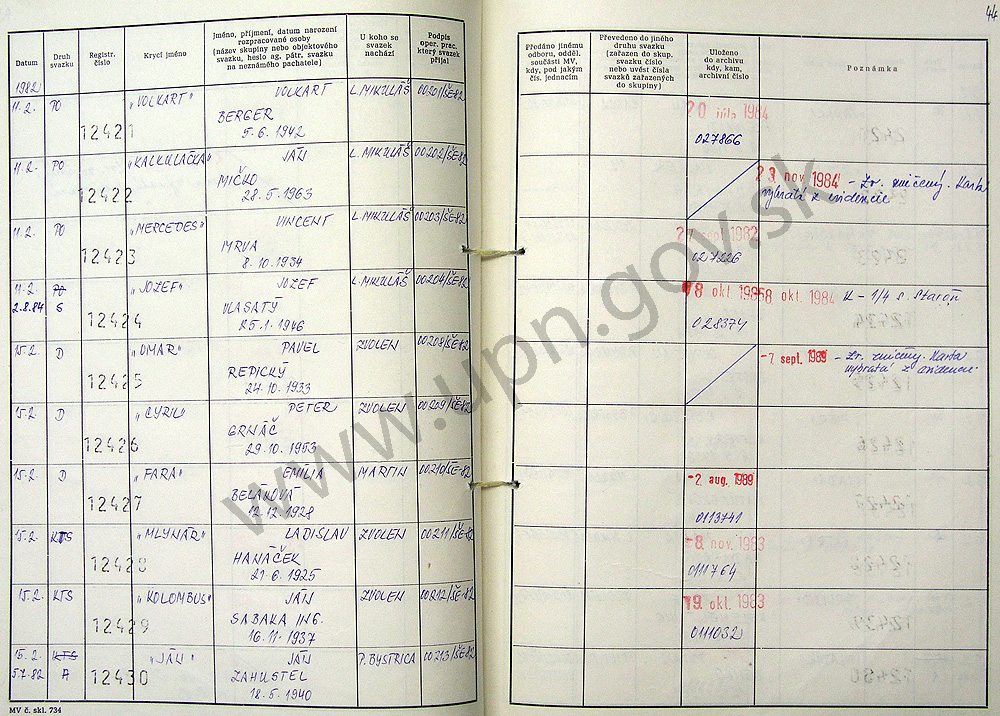 44
Datum
Druh svazku
Registr. číslo
Krycí jméno
Jméno, příjmení, datum narození
rozpracované osoby
(název skupiny nebo objektového
svazku, heslo ag. pátr. svazku
na neznámého pachatele)
U koho se
svazek
nachází
Podpis
oper. prac.
který svazek
přijal
Předáno jinému
odboru, odděl.
součásti MV,
kdy, pod jakým
čís. jednacím
Převedeno do jiného
druhu svazku
(zařazen do skup.
svazku číslo
nebo uvést čísla
svazků zařazených
do skupiny)
Uloženo
do archivu
kdy, kam,
archivní číslo
Poznámka
1982
11.2. PO "VOLKART" VOLKART L. MIKULÁŠ 00201/ŠE-82
BERGER
12421 5.6.1942
1984
027866
11.2. PO "KALKULAČKA" JÁN L. MIKULÁŠ 00202/ŠE-82
MIČKO
12422 28.5.1963
23 nov. 1984 - Zv. zničený. Karta
vybratá z evidencie
11.2. PO "MERCEDES" VINCENT L. MIKULÁŠ 00203/ŠE-82
MRVA
12423 8.10.1934
sept. 1982
027226
11.2. PO "JOZEF" JOZEF L. MIKULÁŠ 00204/ŠE-82
2.8.84 S VLASATÝ
12424 25.1.1946
8 okt. 1984 K - 1/4 s. Staroň
028374
15.2. D "OMAR" PAVEL ZVOLEN 00208/ŠE-82
REPICKÝ
12425 24.10.1933
-7. sept. 1989 - Zv. zničený. Karta
vybratá z evidencie
15.2. D "CYRIL" PETER ZVOLEN 00209/ŠE-82
GRNÁČ
12426 29.10.1953
15.2. D "FARA" EMÍLIA MARTIN 00210/ŠE-82
BELÁKOVÁ
12427 12.12.1928
-2. aug. 1989
0113741
15.2. KTS "MLYNÁR" LADISLAV ZVOLEN 00211/ŠE-82
HANÁČEK
12428 21.6.1925
-8. nov. 1983
0111764
15.2. KTS "KOLOMBUS" JÁN ZVOLEN 00212/ŠE-82
SABAKA ING.
12429 16.11.1937
19. okt. 1983
0111032
15.2. KTS "JÁN" JÁN P. BYSTRICA 00213/ŠE-82
5.7.82 A ZAHUSTEL
12430 18.5.1940
MV č. skl. 734
www.upn.gov.sk